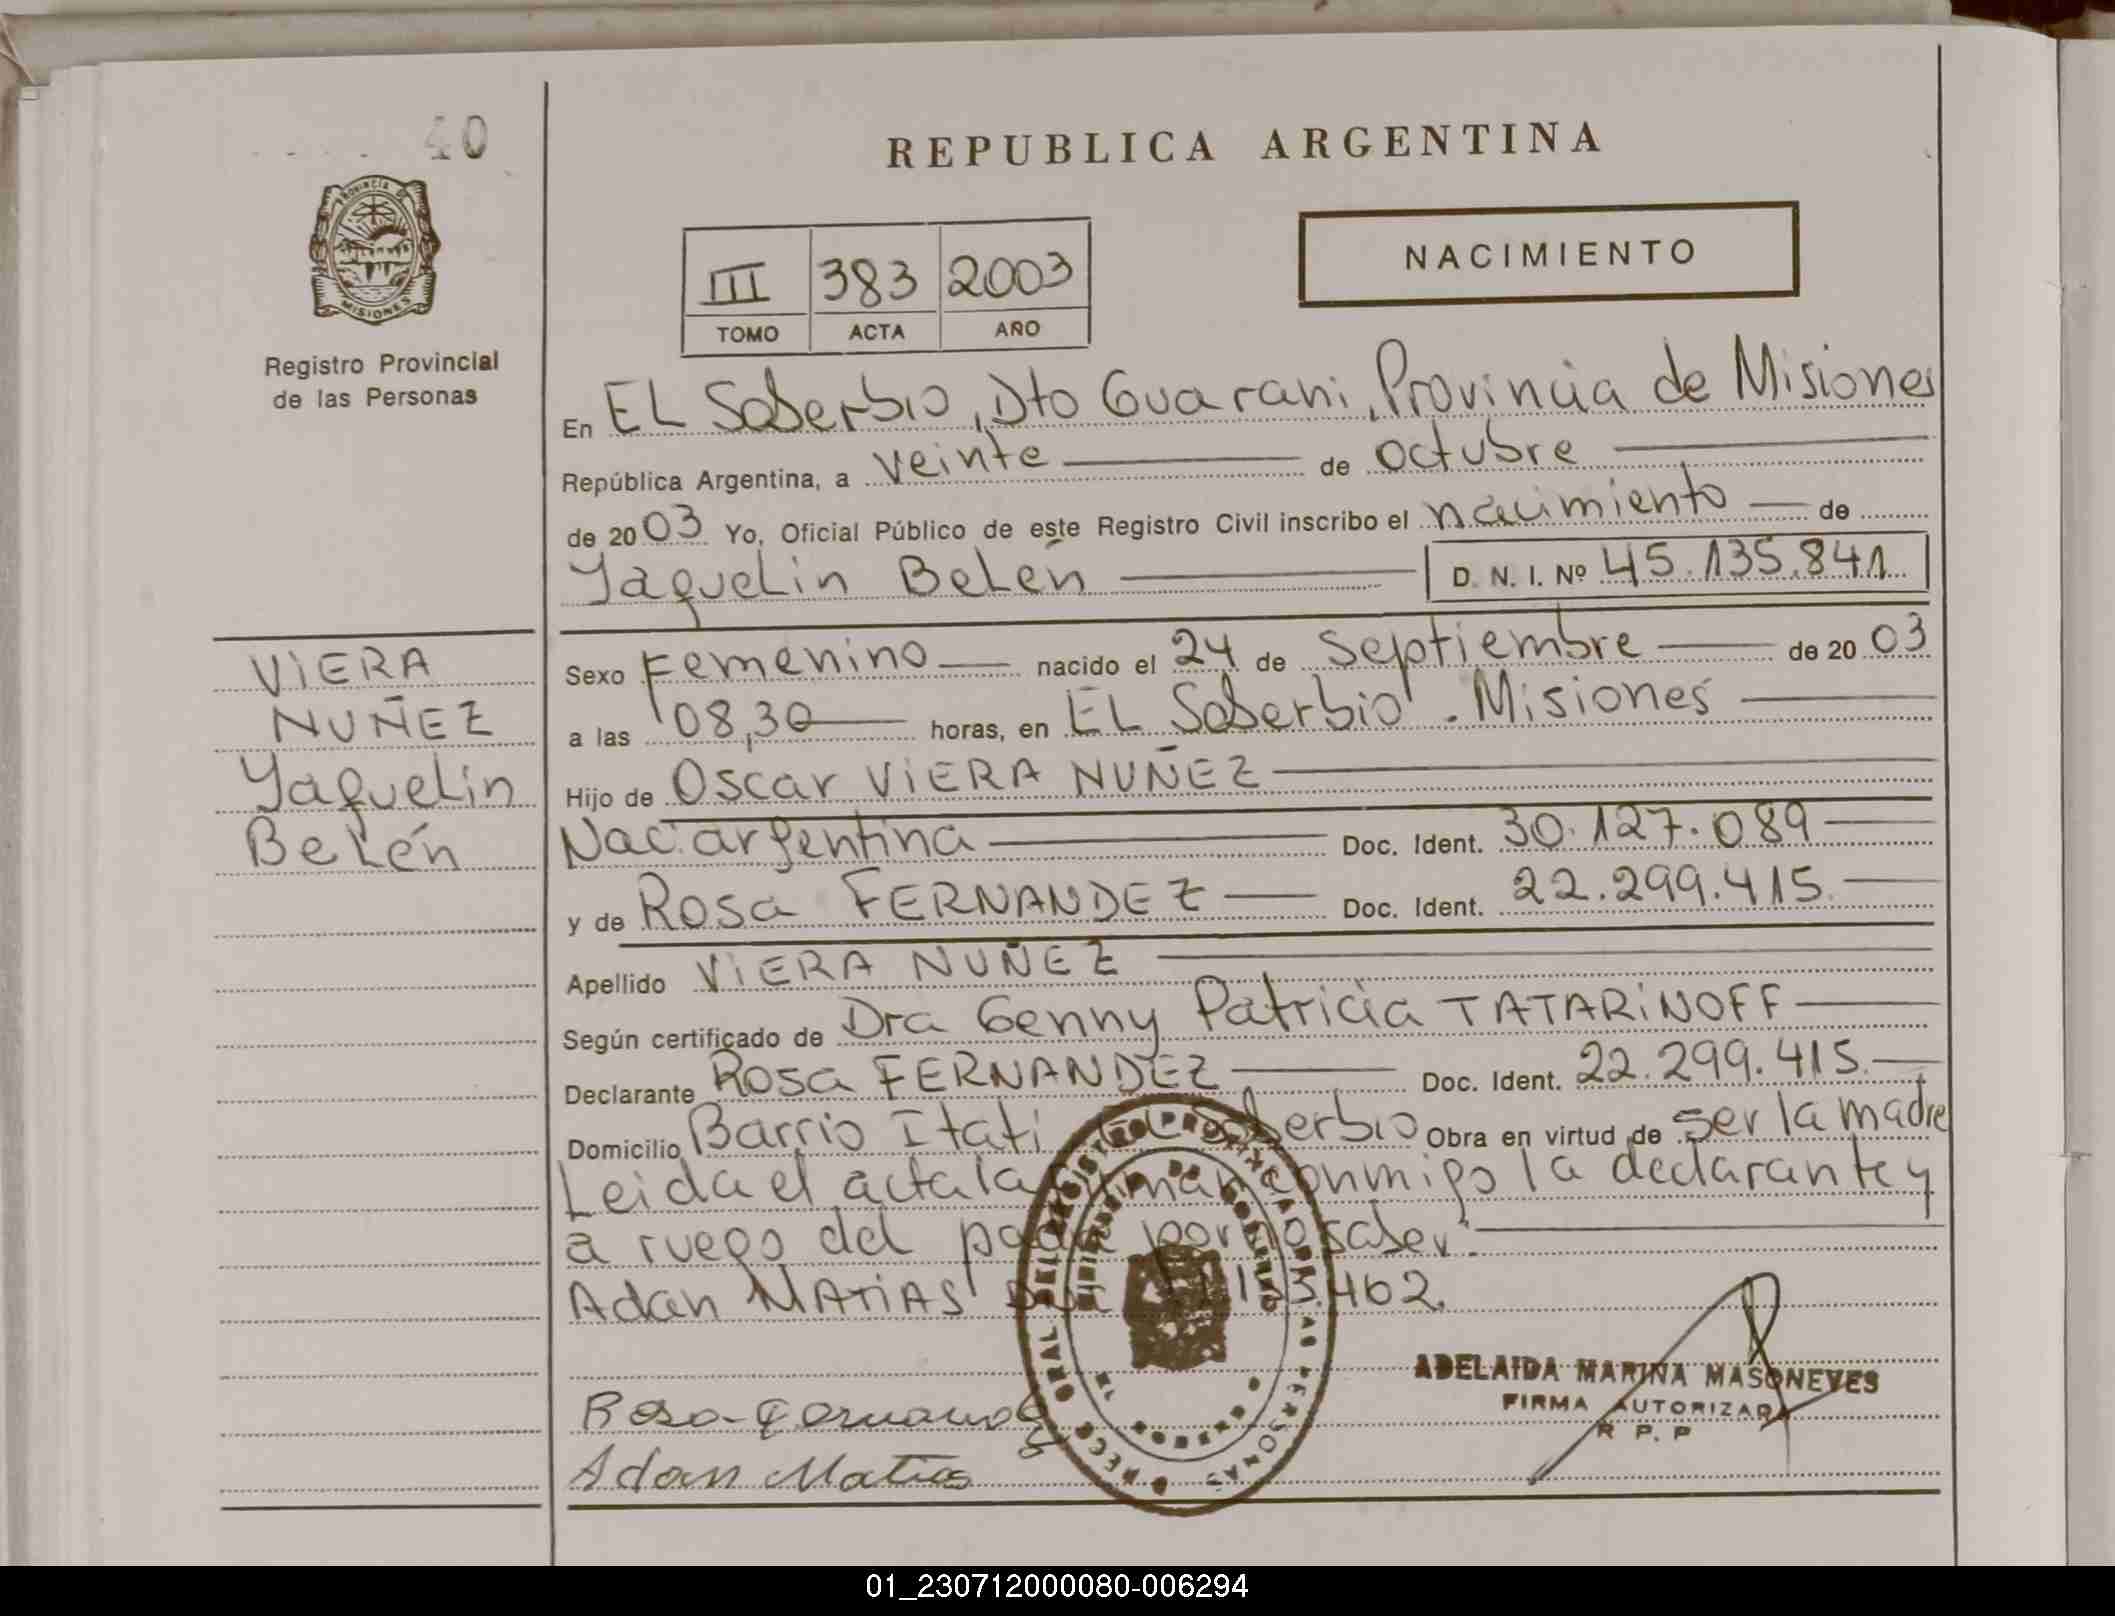 40
REPUBLICA ARGENTINA
PROVINCIA DE
MISIONES
Registro Provincial
de las Personas
III 383 2003
TOMO ACTA AÑO
NACIMIENTO
En EL Soberbio, Dto Guarani, Provincia de Misiones
República Argentina, a veinte de octubre
de 2003 Yo, Oficial Público de este Registro Civil inscribo el nacimiento de
Yaquelin Belén D. N. I. Nº 45.135.841
VIERA
NUÑEZ
Yaquelin
Belén
Sexo Femenino nacido el 24 de Septiembre de 2003
a las 08,30 horas, en EL Soberbio . Misiones
Hijo de Oscar VIERA NUÑEZ
Nac. argentina Doc. Ident. 30.127.089
y de Rosa FERNANDEZ Doc. Ident. 22.299.415.
Apellido VIERA NUÑEZ
Según certificado de Dra Genny Patricia TATARINOFF
Declarante Rosa FERNANDEZ Doc. Ident. 22.299.415.
Domicilio Barrio Itati EL Soberbio Obra en virtud de ser la madre
Leida el acta la firman conmigo la declarante y
a ruego del padre por no saber.
Adan MATIAS
Rosa Fernandez
Adan Matias
ADELAIDA MARINA MASONEVES
FIRMA AUTORIZADA
R. P. P
01_230712000080-006294